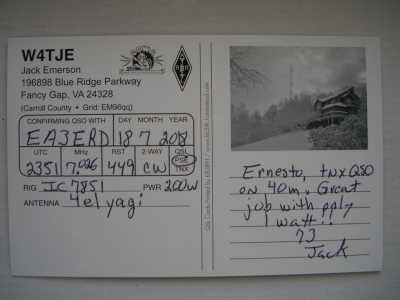 W4TJE
Jack Emerson
196898 Blue Ridge Parkway
Fancy Gap, VA 24328
(Carroll County • Grid: EM96qq)
CONFIRMING QSO WITH DAY MONTH YEAR
EA3ERD 18 7 2018
UTC MHz RST 2-WAY QSL
PSE
TNX
2351 7.026 449 CW
RIG IC 7851 PWR 200W
ANTENNA 4el yagi
Ernesto, tnx QSO
on 40m. Great
job with pply
1 watt!!
73
Jack